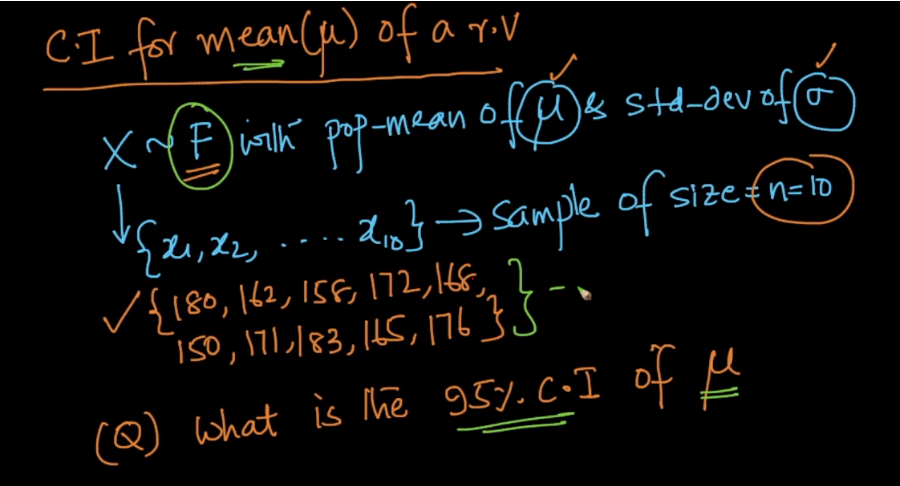 C.I for mean(μ) of a r.v
X ~ F with pop-mean of μ & std-dev of σ
{x1, x2, ..... x10} → Sample of size = n=10
✓ {180, 162, 158, 172, 168,
150, 171, 183, 165, 176 }
(Q) What is the 95%. C.I of μ